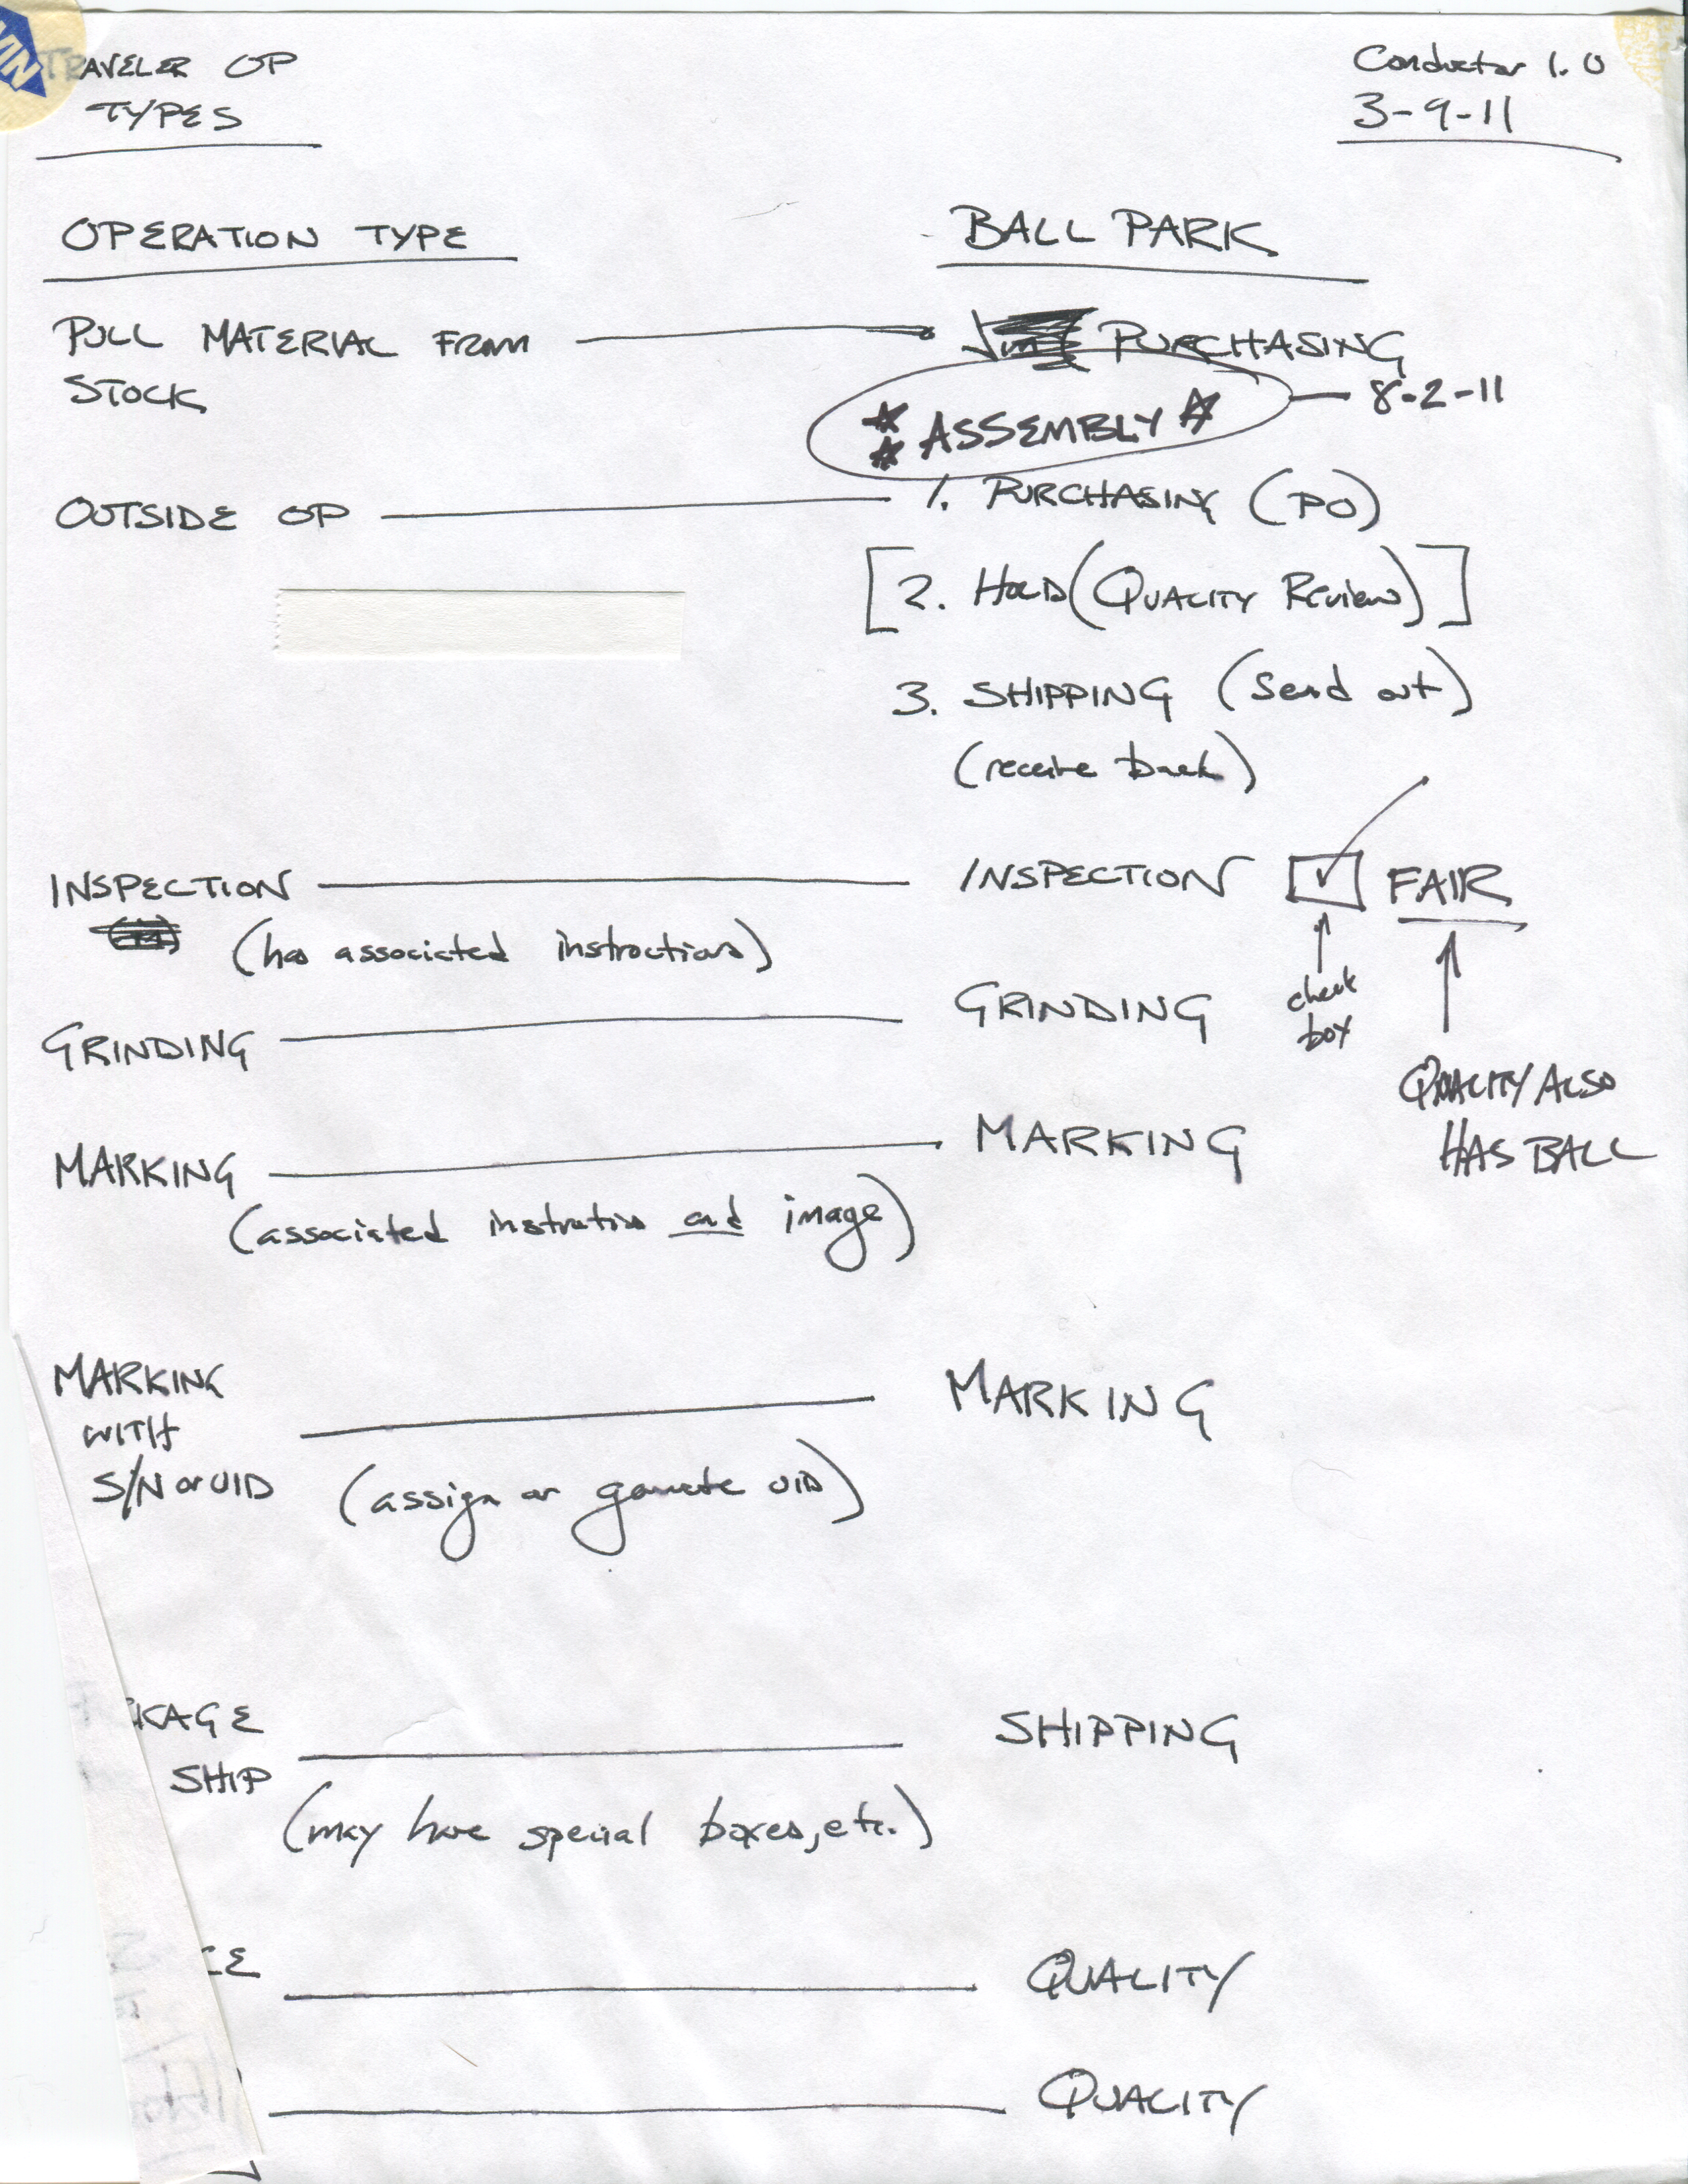 TRAVELER OP
TYPES
Conductor 1.0
3-9-11
OPERATION TYPE
BALL PARK
PULL MATERIAL FROM
STOCK
PURCHASING
ASSEMBLY
8-2-11
OUTSIDE OP
1. PURCHASING (PO)
[2. HOLD (QUALITY Review)]
3. SHIPPING (Send out)
(receive back)
INSPECTION
INSPECTION
FAIR
(has associated instructions)
check
box
GRINDING
GRINDING
QUALITY ALSO
HAS BALL
MARKING
MARKING
(associated instructions and image)
MARKING
WITH
S/N or UID
MARKING
(assign or generate UID)
KAGE
SHIP
SHIPPING
(may have special boxes, etc.)
CE
QUALITY
QUALITY